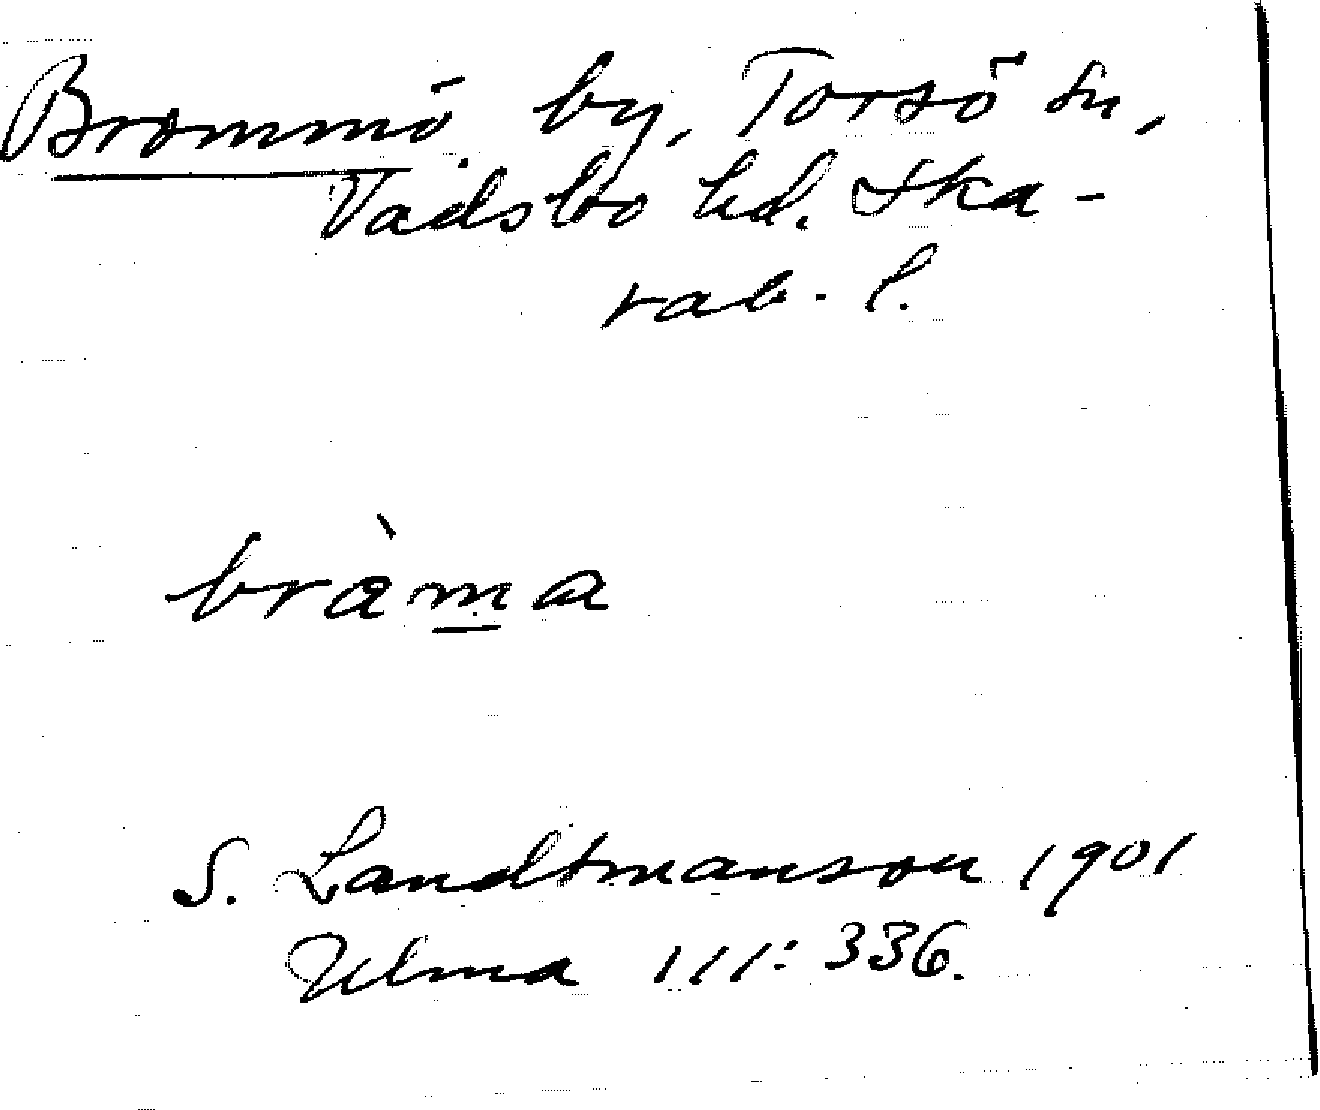 Brommö by, Torsö sn,
Vadsbo hd. Ska-
rab. l.
bràma
S. Landtmanson 1901
Ulma 111: 336.